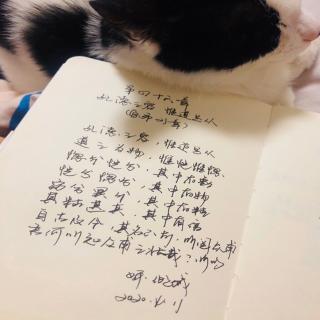 第四十六篇
孔德之容 惟道是从
孔德之容，惟道是从
道之为物，惟恍惟惚
惚兮恍兮，其中有象
恍兮惚兮，其中有物
窈兮冥兮，其中有精
其精甚真，其中有信
自古及今，其名不去，
吾何以知众甫之状哉？以此